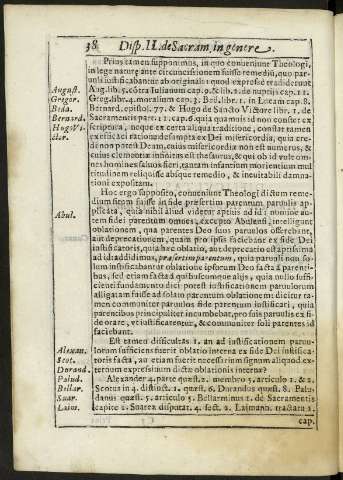 38 Disp. II. de Sacram. in genere.
Prius tamen supponimus, in quo conveniunt Theologi,
in lege naturæ ante circuncisionem fuisse remediũ, quo par-
vuli iustificabantur ab originali: quod expressè tradiderunt
August. Aug. lib. 5. cõtra Iulianum cap. 9. & lib. 2. de nuptijs cap. 11.
Gregor. Greg. lib. 4. moralium cap. 3. Bed. libr. 1. in Lucam cap. 8.
Beda. Bernard. epistol. 77. & Hugo de Sancto Victore libr. 1. de
Bernard. Sacramentis part. 11. cap. 6. quia quamvis id non constet ex
Hugo Vi- scriptura, neque ex certa aliqua traditione, constat tamen
ctor. ex efficaci ratione desumpta ex Dei misericordia, quia cre-
di non potest Deum, cuius misericordiæ non est numerus, &
cuius clementiæ infinitus est thesaurus, & qui ob id vult om-
nes homines salvos fieri, tantam infantium morientium mul
titudinem reliquisse absque remedio, & inevitabili damna-
tioni expositam.
Hoc ergo supposito, conveniunt Theologi dictum reme-
dium situm fuisse in fide præsertim parentum parvulis ap-
plicata, quia nihil aliud videtur aptius ad id: nomine au-
Abul. tem fidei parentum omnes, excepto Abulensi, intelligunt
oblationem, qua parentes Deo suos parvulos offerebant,
aut deprecationem, quam pro ipsis faciebant ex fide Dei
iustificatoris, quia hæc oblatio, aut deprecatio est aptissima
ad id: addidimus, præsertim parentum, quia parvuli non so-
lum iustificabantur oblatione ipsorum Deo facta à parenti-
bus, sed etiam facta à quibuscumque alijs, quia nullo suffi-
cienti fundamento dici potest iustificationem parvulorum
alligatam fuisse ad solam parentum oblationem: dicitur ta-
men communiter parvulos fide parentum iustificari, quia
parentibus principaliter incumbebat, pro suis parvulis ex fi-
de orare, vt iustificarentur, & communiter soli parentes id
faciebant.
Est tamen difficultas 1. an ad iustificationem parvu-
Alexan. lorum sufficiens fuerit oblatio interna ex fide Dei iustifica-
Scot. toris facta, an etiam fuerit necessarium signum aliquod ex-
Durand. ternum expressivum dictæ oblationis internæ?
Palud. Alexander 4. parte quæst. 2. membro 5. articulo 1. & 2.
Bellar. Scotus in 4. distinct. 1. quæst. 6. Durandus quæst. 8. Palu-
Suar. danus quæst. 5. articulo 5. Bellarminus 1. de Sacramentis
Laim. capite 2. Suarez disputat. 4. sect. 2. Laimann. tractatu 1.
cap.